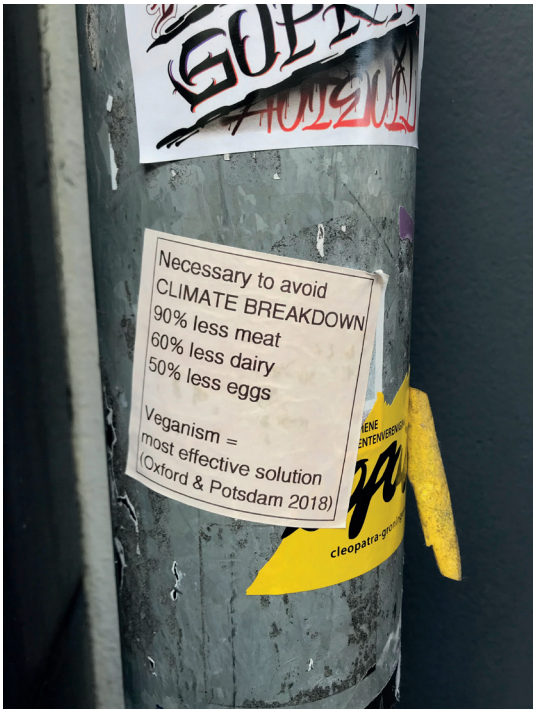 Necessary to avoid
CLIMATE BREAKDOWN
90% less meat
60% less dairy
50% less eggs
Veganism =
most effective solution
(Oxford & Potsdam 2018)
MENE
ENTENVERENIGIN
cleopatra-groning